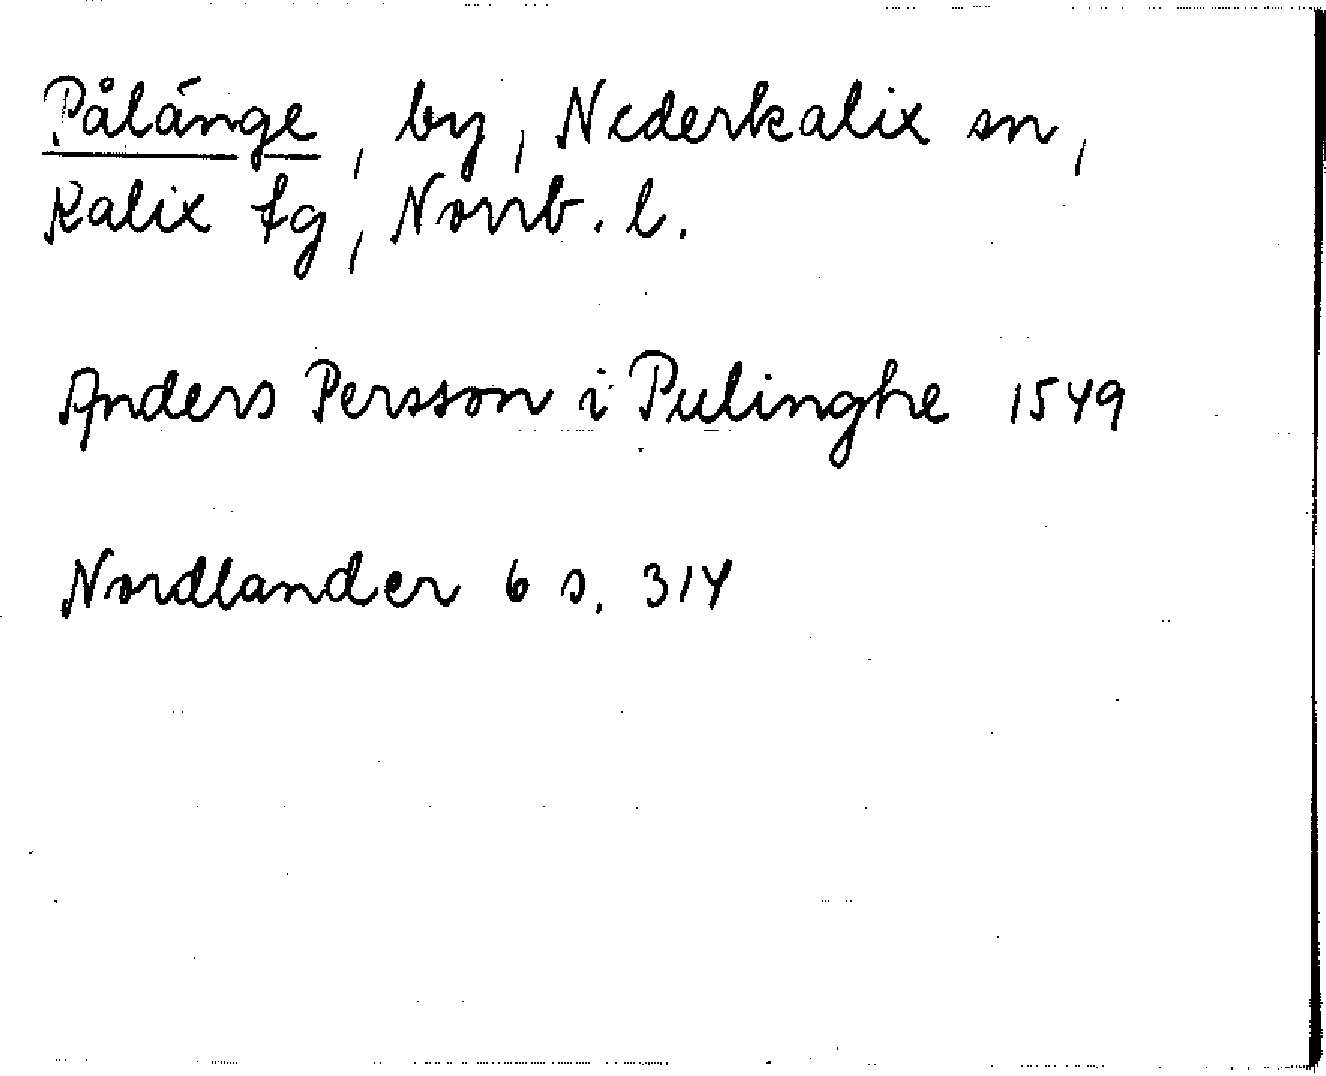 Pålänge, by, Nederkalix sn,
Kalix tg, Norrb. l.
Anders Persson i Pulinghe 1549
Nordlander 6 s. 314